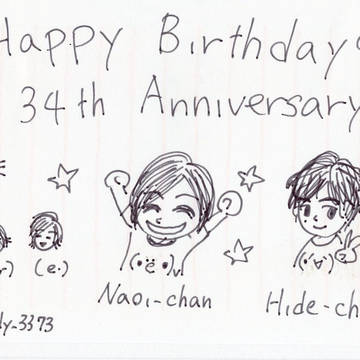 Happy Birthday
34th Anniversary
(e.)
Naoi-chan
Hide-ch
dy_3373